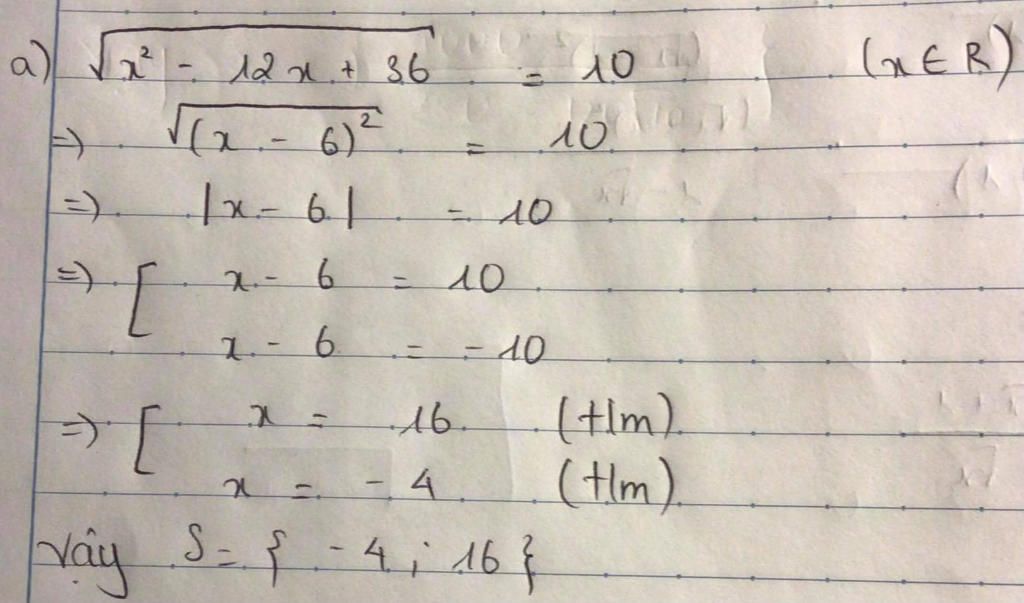 a) √(x² - 12x + 36) = 10 (x ∈ R)
=> √((x - 6)²) = 10
=> |x - 6| = 10
=> [ x - 6 = 10
x - 6 = -10
=> [ x = 16 (t/m)
x = -4 (t/m)
Vậy S = { -4 ; 16 }